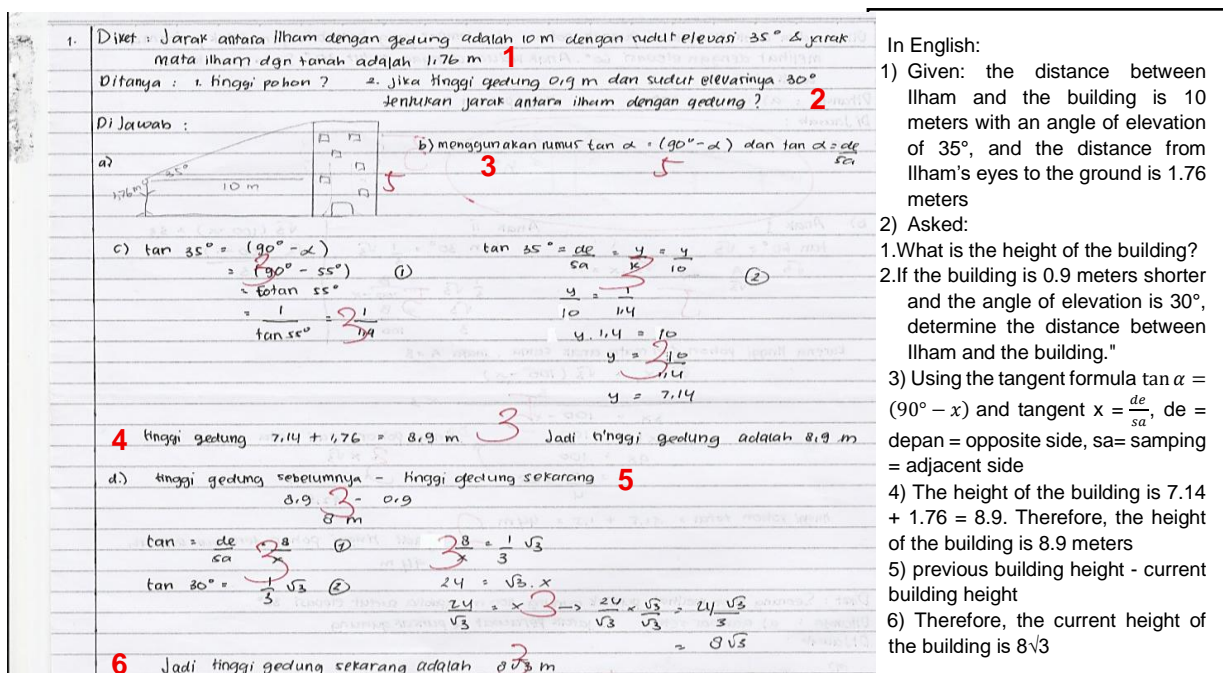 1. Diket : Jarak antara Ilham dengan gedung adalah 10 m dengan sudut elevasi 35° & jarak
mata ilham dgn tanah adalah 1,76 m 1
Ditanya : 1. tinggi pohon ? 2. jika tinggi gedung 0,9 m dan sudut elevasinya 30°
tentukan jarak antara ilham dengan gedung ? 2
Di Jawab :
a)
35°
1,76 m
10 m
5
b) menggunakan rumus tan α = (90° - α) dan tan α = de/sa
3
5
c) tan 35° = (90° - α)
= (90° - 55°) ①
3
= cotan 55°
= 1/tan 55° = 1/1,4
3
tan 35° = de/sa = y/x = y/10
3
②
y/10 = 1/1,4
y. 1,4 = 10
y = 10/1,4
3
y = 7,14
4 tinggi gedung 7,14 + 1,76 = 8,9 m 3 Jadi tinggi gedung adalah 8,9 m
d.) tinggi gedung sebelumnya - tinggi gedung sekarang 5
8,9 - 0,9
3
8 m
tan = de/sa = 8/x ①
3
tan 30° = 1/3 √3 ②
8/x = 1/3 √3
3
24 = √3 . x
24/√3 = x → 24/√3 × √3/√3 = 24 √3/3
3
= 8√3
6 Jadi tinggi gedung sekarang adalah 8√3 m
3
In English:
1) Given: the distance between
Ilham and the building is 10
meters with an angle of elevation
of 35°, and the distance from
Ilham's eyes to the ground is 1.76
meters
2) Asked:
1.What is the height of the building?
2.If the building is 0.9 meters shorter
and the angle of elevation is 30°,
determine the distance between
Ilham and the building."
3) Using the tangent formula tan α =
(90° − x) and tangent x = de/sa, de =
depan = opposite side, sa= samping
= adjacent side
4) The height of the building is 7.14
+ 1.76 = 8.9. Therefore, the height
of the building is 8.9 meters
5) previous building height - current
building height
6) Therefore, the current height of
the building is 8√3